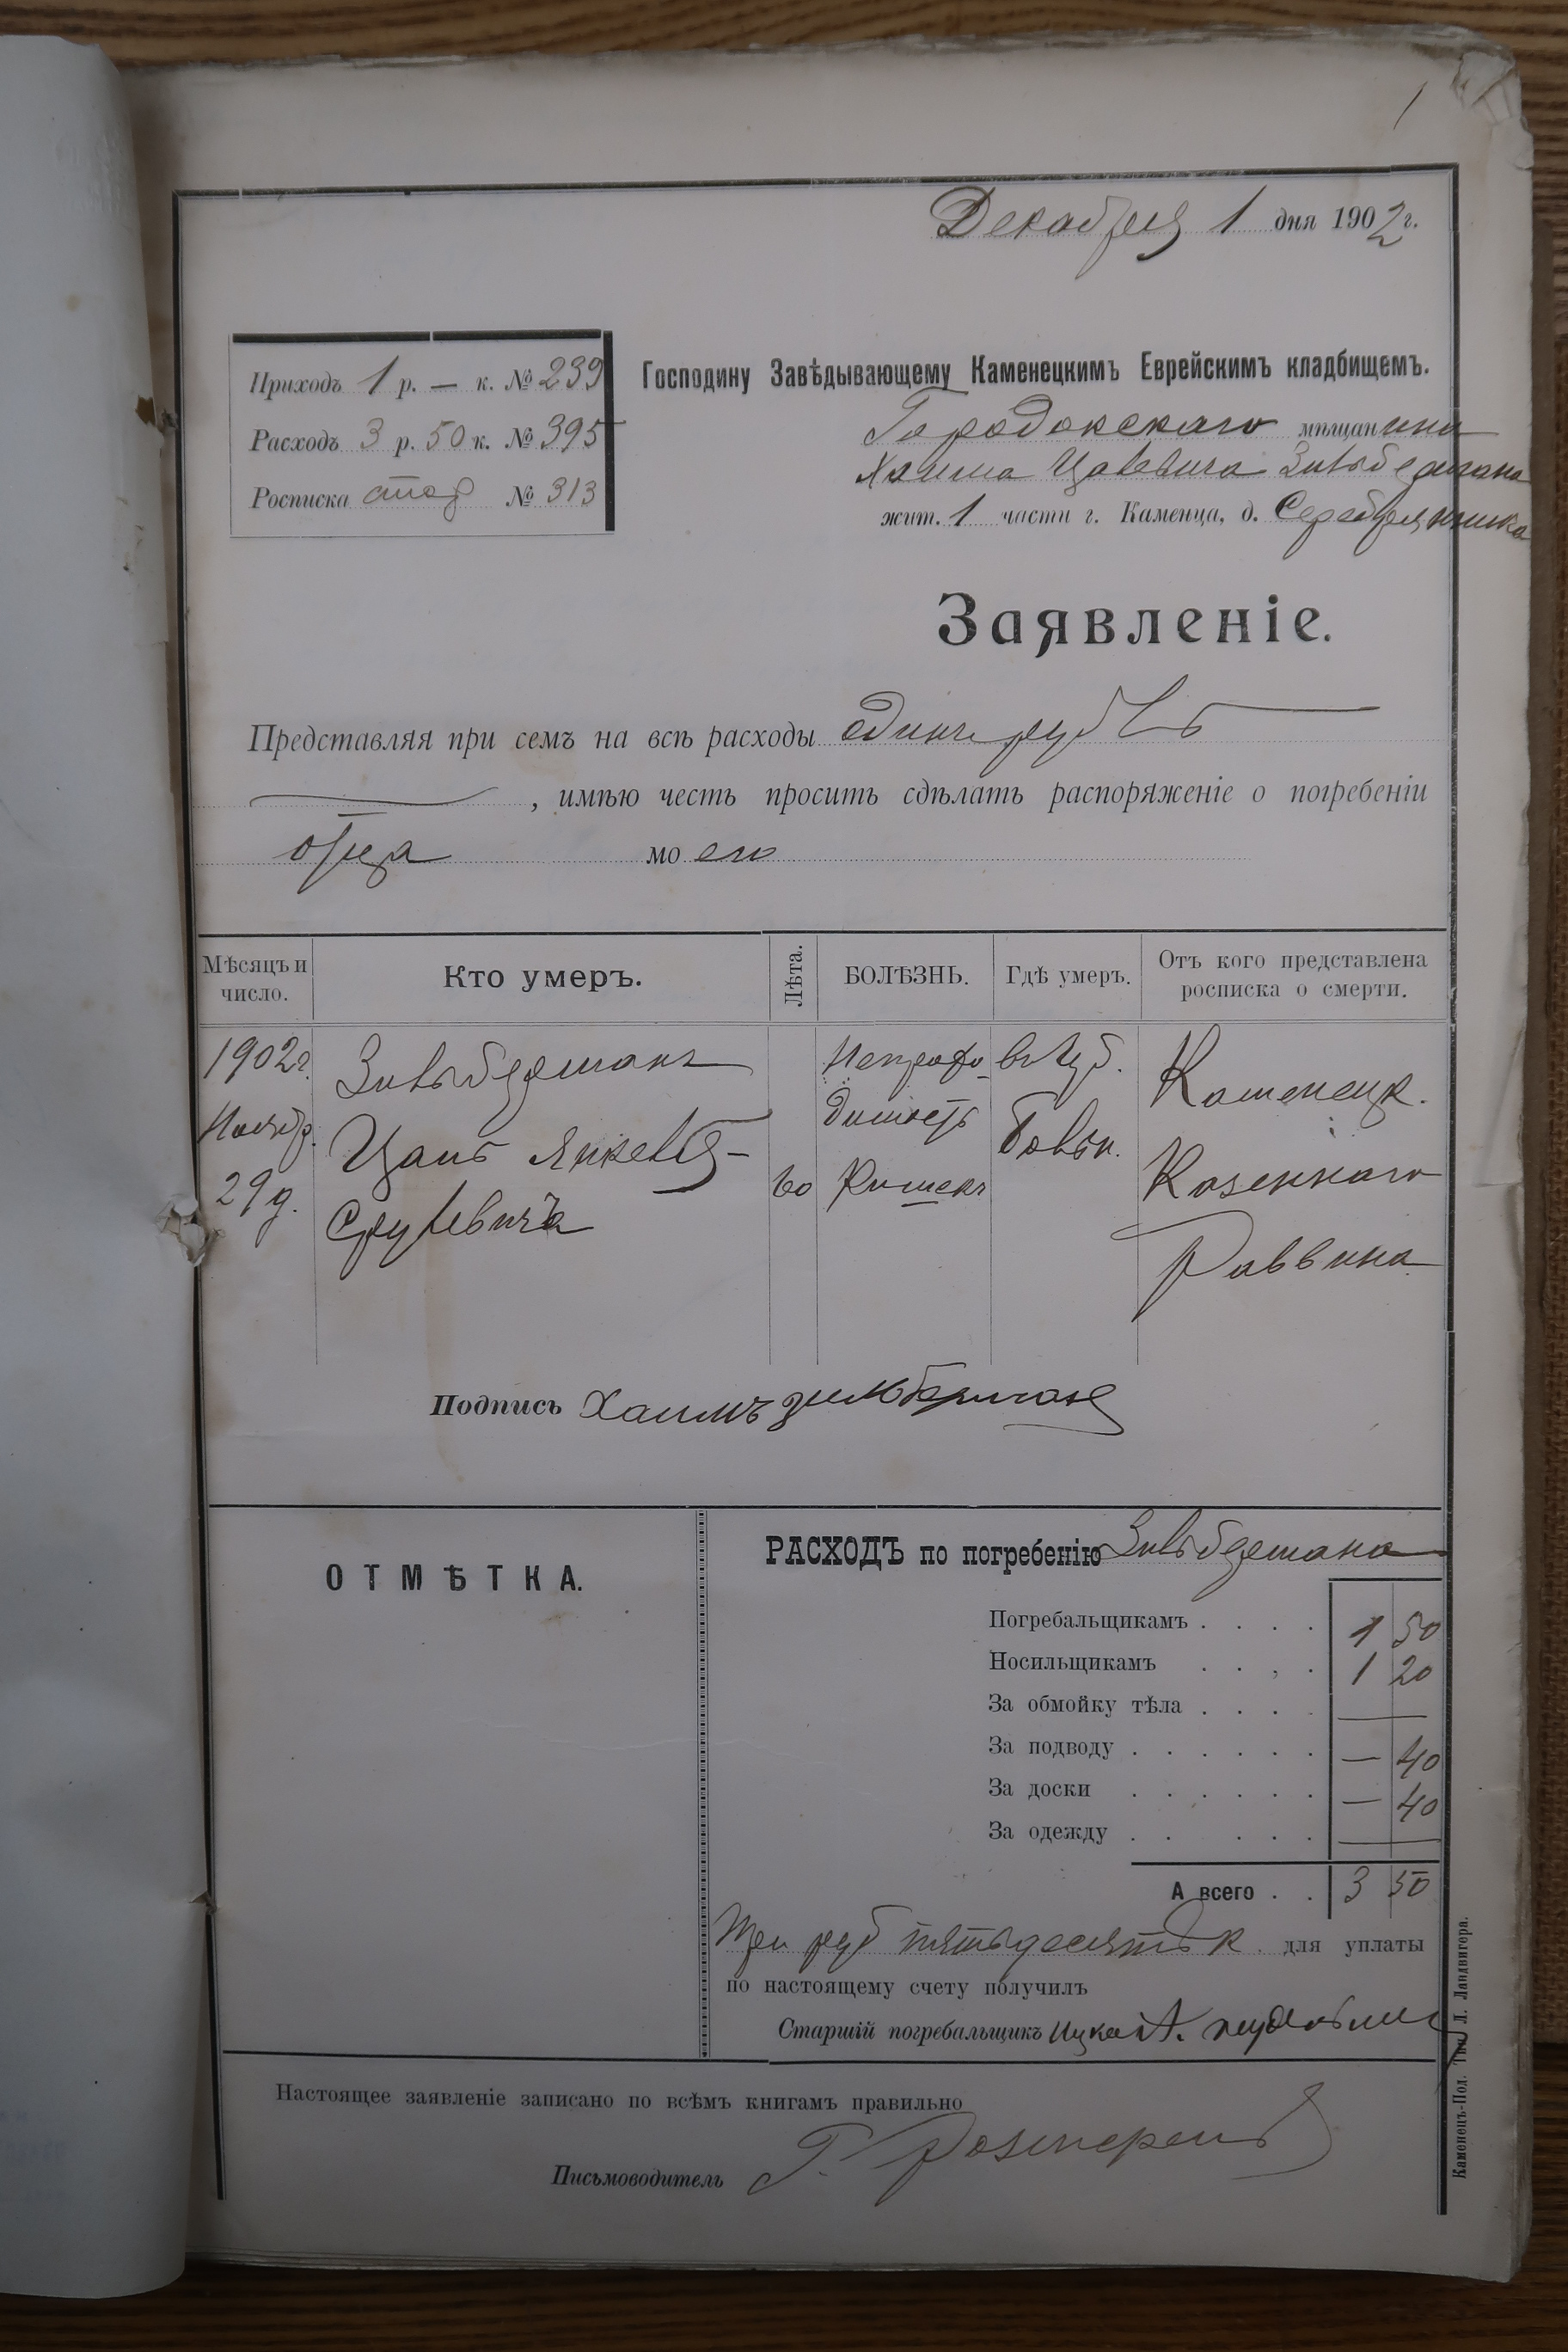 1
Декабря 1 дня 1902 г.
Приходъ 1 р. — к. № 239
Расходъ 3 р. 50 к. № 395
Росписка № 313
Господину Завѣдывающему Каменецкимъ Еврейскимъ кладбищемъ.
Городокскаго мѣщанина
Хаима Цалевича Зильбермана
жит. 1 части г. Каменца, д. Серебрянника
Заявленіе.
Представляя при семъ на всѣ расходы одинъ рубль
, имѣю честь просить сдѣлать распоряженіе о погребеніи
отца моего
Мѣсяцъ и число.
Кто умеръ.
Лѣта.
БОЛѢЗНЬ.
Гдѣ умеръ.
Отъ кого представлена росписка о смерти.
1902 г.
Ноябр.
29 д.
Зильберманъ
Срулевича
60
Непрохо
димость
Кишекъ
Каменецк.
Казеннаго
Раввина
Подпись Хаимъ Зильберман
ОТМѢТКА.
РАСХОДЪ по погребенію Зильбермана
Погребальщикамъ . . . . 1 50
Носильщикамъ . . . . 1 20
За обмойку тѣла . . . . —
За подводу . . . . . . — 40
За доски . . . . . . — 40
За одежду . . . . . —
А всего . . 3 50
Три руб пятьдесятъ к. для уплаты
по настоящему счету получилъ
Старшій погребальщикъ Ицка
Настоящее заявленіе записано по всѣмъ книгамъ правильно
Письмоводитель
Каменецъ-Под. Тип. Л. Ландвигера.